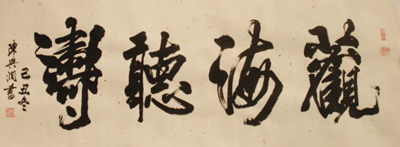 觀海聽濤
己丑冬
陳興潤書